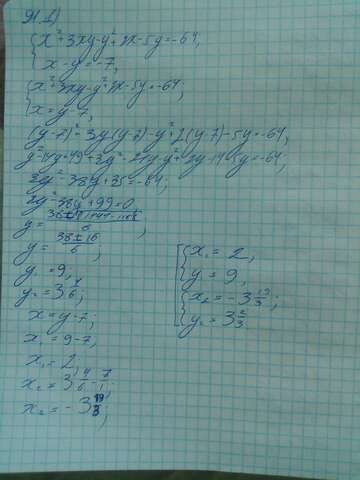 x²+3xy-y²+2x-5y=-64,
x-y=-7,
x²+3xy-y²+2x-5y=-64;
x=y-7,
(y-7)²+3y(y-7)-y²+2(y-7)-5y=-64,
y²-14y+49+3y²-21y-y²+2y-14-5y=-64;
3y²-38y+35=-64;
3y²-38y+99=0
y=
y=38±16/6;
y₁=9,
y₂=3 4/6;
x=y-7;
x₁=9-7,
x₁=2,
x₂=3 4/6-7/1;
x₂=-3 19/3;
x₁=2,
y₁=9,
x₂=-3 19/3;
y₂=3 2/3